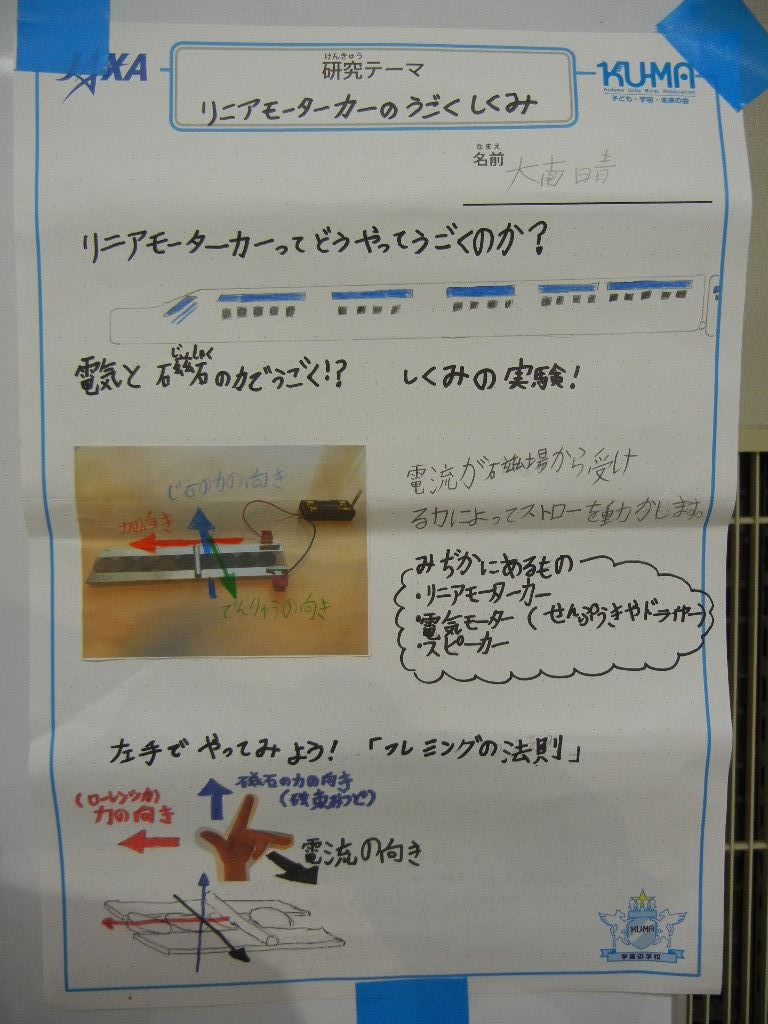 JAXA
けんきゅう
研究テーマ
リニアモーターカーのうごくしくみ
KU-MA
Kodomo Uchu Mirai Association
子ども・宇宙・未来の会
なまえ
名前 大南 晴
リニアモーターカーってどうやってうごくのか?
じしゃく
電気と磁石の力でうごく!?
しくみの実験!
じ石の力の向き
力の向き
でんりゅうの向き
電流が磁場から受け
る力によってストローを動かします。
みぢかにあるもの
・リニアモーターカー
・電気モーター(せんぷうきやドライヤー)
・スピーカー
左手でやってみよう!「フレミングの法則」
磁石の力の向き
(磁束みつど)
(ローレンツ力)
力の向き
電流の向き
KUMA
宇宙の学校